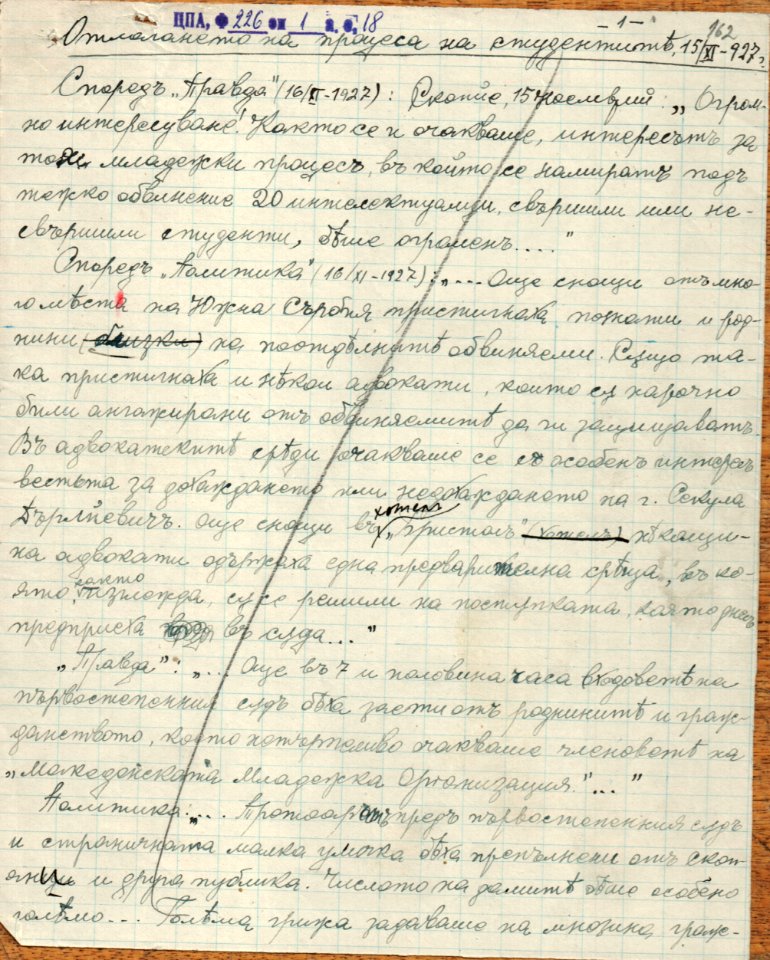 ЦПА, Ф 226 оп 1 а.е. 18
-1- 162
Отлагането на процеса на студентитѣ, 15/XI-927 г.
Споредъ „Правда" (16/XI-1927): Скопие, 15 ноемврий: „Огром-
но интересуване! Както се и очакваше, интересътъ за
този младежки процесъ, въ който се намиратъ подъ
тежко обвинение 20 интелектуалци, свършили или не-
свършили студенти, бѣше огроменъ...."
Споредъ „Политика" (16/XI-1927): „... Още снощи отъ мно-
го мѣста на Южна Сърбия пристигнаха познати и род-
нини (близки) на поотдѣлнитѣ обвиняеми. Също та-
ка пристигнаха и нѣкои адвокати, които сѫ нарочно
били ангажирани отъ обвиняемитѣ да ги защищаватъ.
Въ адвокатскитѣ срѣди очакваше се съ особенъ интересъ
вестьта за дохаждането или недохаждането на г. Секула
Дърлѣвичъ. Още снощи въ хотелъ „Бристолъ" (хотелъ) нѣколци-
на адвокати одържаха една предварителна срѣща, въ ко-
ято, както изглежда, сѫ се решили на постѫпката, която днесъ
предприеха въ сѫда..."
„Правда": „... Още въ 7 и половина часа входоветѣ на
първостепенния сѫдъ бѣха заети отъ роднинитѣ и граж-
данството, което нетърпеливо очакваше членоветѣ на
„Македонската Младежка Организация"..."
Политика: „... Тротоарътъ предъ първостепенния сѫдъ
и страничната малка уличка бѣха препълнени отъ скоп-
янци и друга публика. Числото на дамитѣ бѣше особено
голѣмо... Голѣма грижа задаваше на мнозина граж-